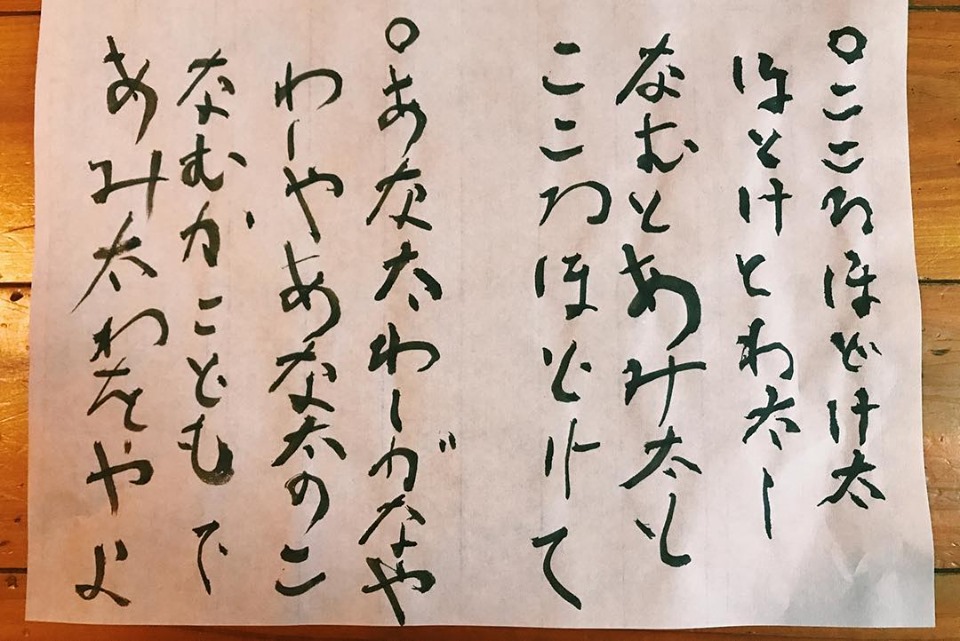 ○こころほどけ太
ほとけとわ太し
なむとあみ太し
こころほどけて
○あな太わしがなや
わしやあな太のこ
なむがこともで
あみ太わをやよ